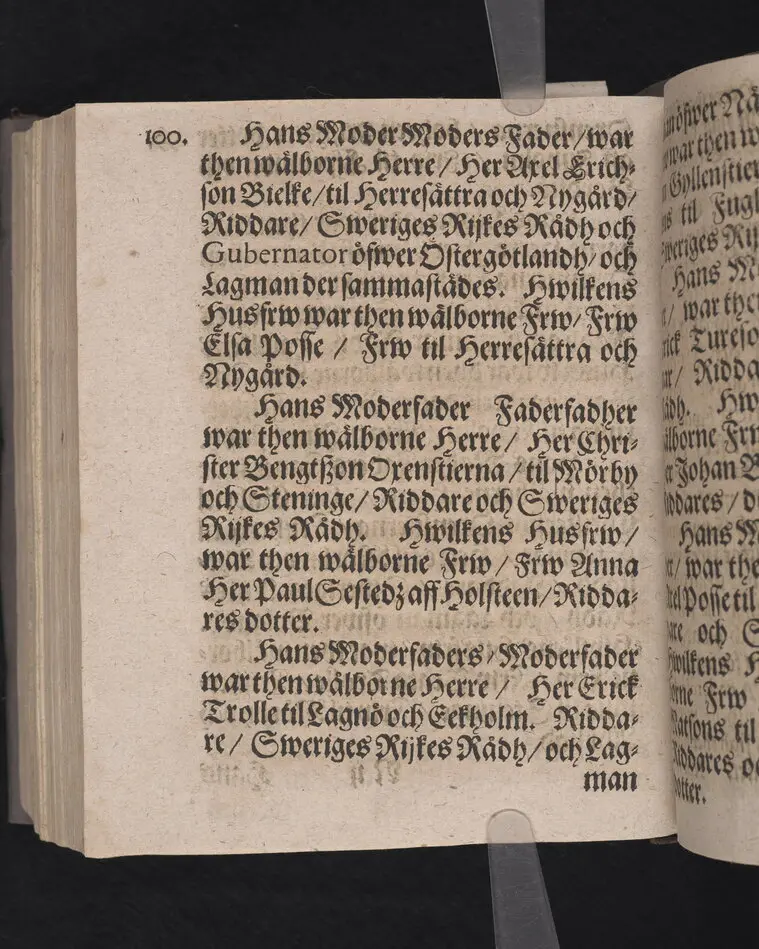 100. Hans Moder Moders Fader/ war
then wälborne Herre/ Her Axel Erich-
son Bielke/ til Herresättra och Nygård/
Riddare/ Sweriges Rijkes Rådh och
Gubernator öfwer Östergötlandh/ och
Lagman der sammastädes. Hwilkens
Husfrw war then wälborne Frw/ Frw
Elsa Posse / Frw til Herresättra och
Nygård.
Hans Moderfader Faderfadher
war then wälborne Herre/ Her Chri-
ster Bengtßon Oxenstierna/ til Mörby
och Steninge/ Riddare och Sweriges
Rijkes Rådh. Hwilkens Husfrw/
war then wälborne Frw/ Frw Anna
Her Paul Sestedz aff Holsteen/ Ridda-
res dotter.
Hans Moderfaders/ Moderfader
war then wälborne Herre/ Her Erick
Trolle til Lagnö och Eekholm. Ridda-
re/ Sweriges Rijkes Rådh/ och Lag-
man
öfwer
war then
til Fugl
Sweriges
Hans
/ war the
Riddar
Hw
Johan
Hans
/ war the
Posse til
och
dotter.